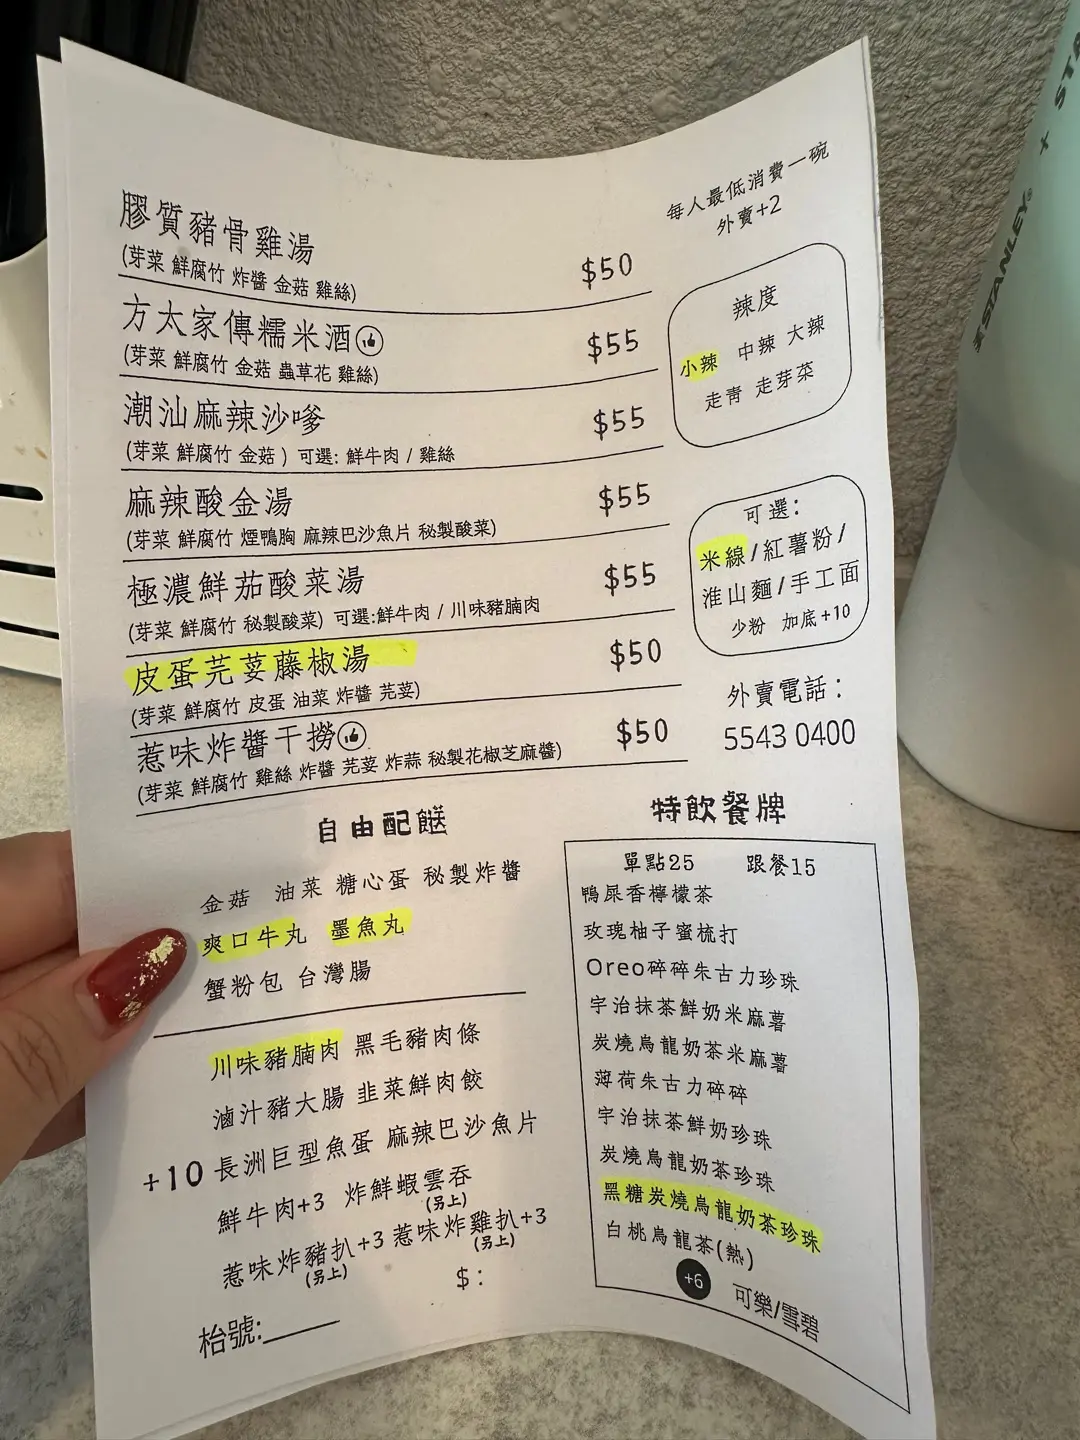 每人最低消費一碗
外賣+2
膠質豬骨雞湯 $50
(芽菜 鮮腐竹 炸醬 金菇 雞絲)
方太家傳糯米酒 $55
(芽菜 鮮腐竹 金菇 蟲草花 雞絲)
潮汕麻辣沙嗲 $55
(芽菜 鮮腐竹 金菇) 可選: 鮮牛肉 / 雞絲
麻辣酸金湯 $55
(芽菜 鮮腐竹 煙鴨胸 麻辣巴沙魚片 秘製酸菜)
極濃鮮茄酸菜湯 $55
(芽菜 鮮腐竹 秘製酸菜) 可選:鮮牛肉 / 川味豬腩肉
皮蛋芫荽藤椒湯 $50
(芽菜 鮮腐竹 皮蛋 油菜 炸醬 芫荽)
惹味炸醬干撈 $50
(芽菜 鮮腐竹 雞絲 炸醬 芫荽 炸蒜 秘製花椒芝麻醬)
辣度
小辣 中辣 大辣
走青 走芽菜
可選:
米線/紅薯粉/
淮山麵/手工面
少粉 加底+10
外賣電話:
5543 0400
自由配餸
金菇 油菜 糖心蛋 秘製炸醬
爽口牛丸 墨魚丸
蟹粉包 台灣腸
川味豬腩肉 黑毛豬肉條
滷汁豬大腸 韭菜鮮肉餃
+10 長洲巨型魚蛋 麻辣巴沙魚片
鮮牛肉+3 炸鮮蝦雲吞
(另上)
惹味炸豬扒+3 惹味炸雞扒+3
(另上) (另上)
$:
枱號:
特飲餐牌
單點25 跟餐15
鴨屎香檸檬茶
玫瑰柚子蜜梳打
Oreo碎碎朱古力珍珠
宇治抹茶鮮奶米麻薯
炭燒烏龍奶茶米麻薯
薄荷朱古力碎碎
宇治抹茶鮮奶珍珠
炭燒烏龍奶茶珍珠
黑糖炭燒烏龍奶茶珍珠
白桃烏龍茶(熱)
+6 可樂/雪碧
STANLEY
×
STA